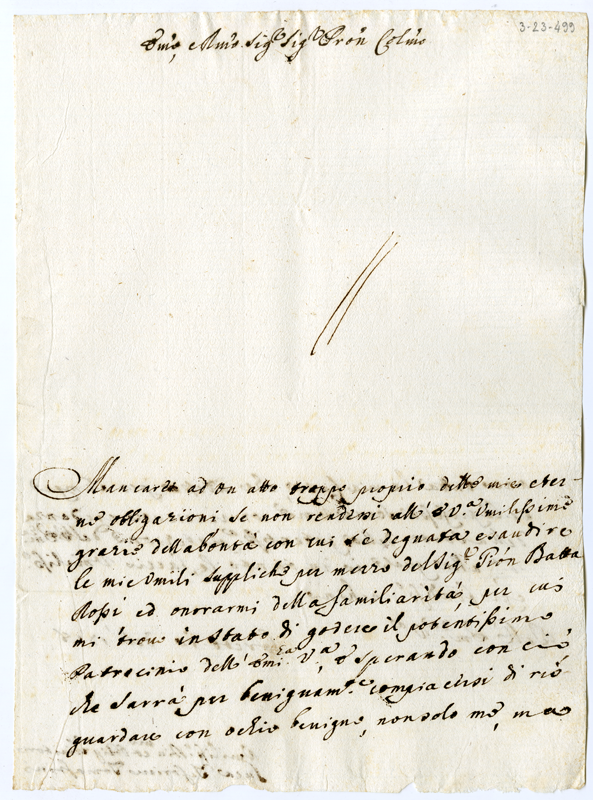 3-23-499
Emo, e Rmo Sigr Sigr Pron Colmo
Mancarei ad un atto troppo proprio delle mie eter-
ne obligazioni se non rendessi all' E Va Umilissime
grazie della bontà con cui s'è degnata esaudire
le mie Umili suppliche per mezzo del Sigr Gion Batta
Rossi ed onorarmi della familiarità, per cui
mi trovo in stato di godere il potentissimo
Patrocinio dell' Emza Va, e sperando con ciò
che sarrà per benignamte compiacersi di ris-
guardare con ochio benigno, non solo me, ma